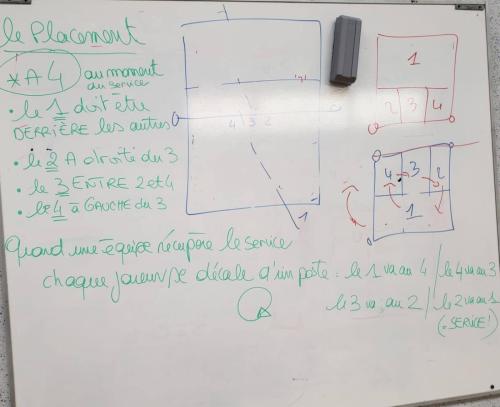 le Placement
* A 4 au moment
du service
• le 1 doit être
DERRIÈRE les autres
• le 2 A droite du 3
• le 3 ENTRE 2 et 4
• le 4 à GAUCHE du 3
4 3 2
1
1
2 3 4
4 3 2
1
Quand une équipe récupère le service
chaque joueur se décale d'un poste : le 1 va au 4 / le 4 va au 3
le 3 va au 2 / le 2 va au 1
(• SERVICE!)